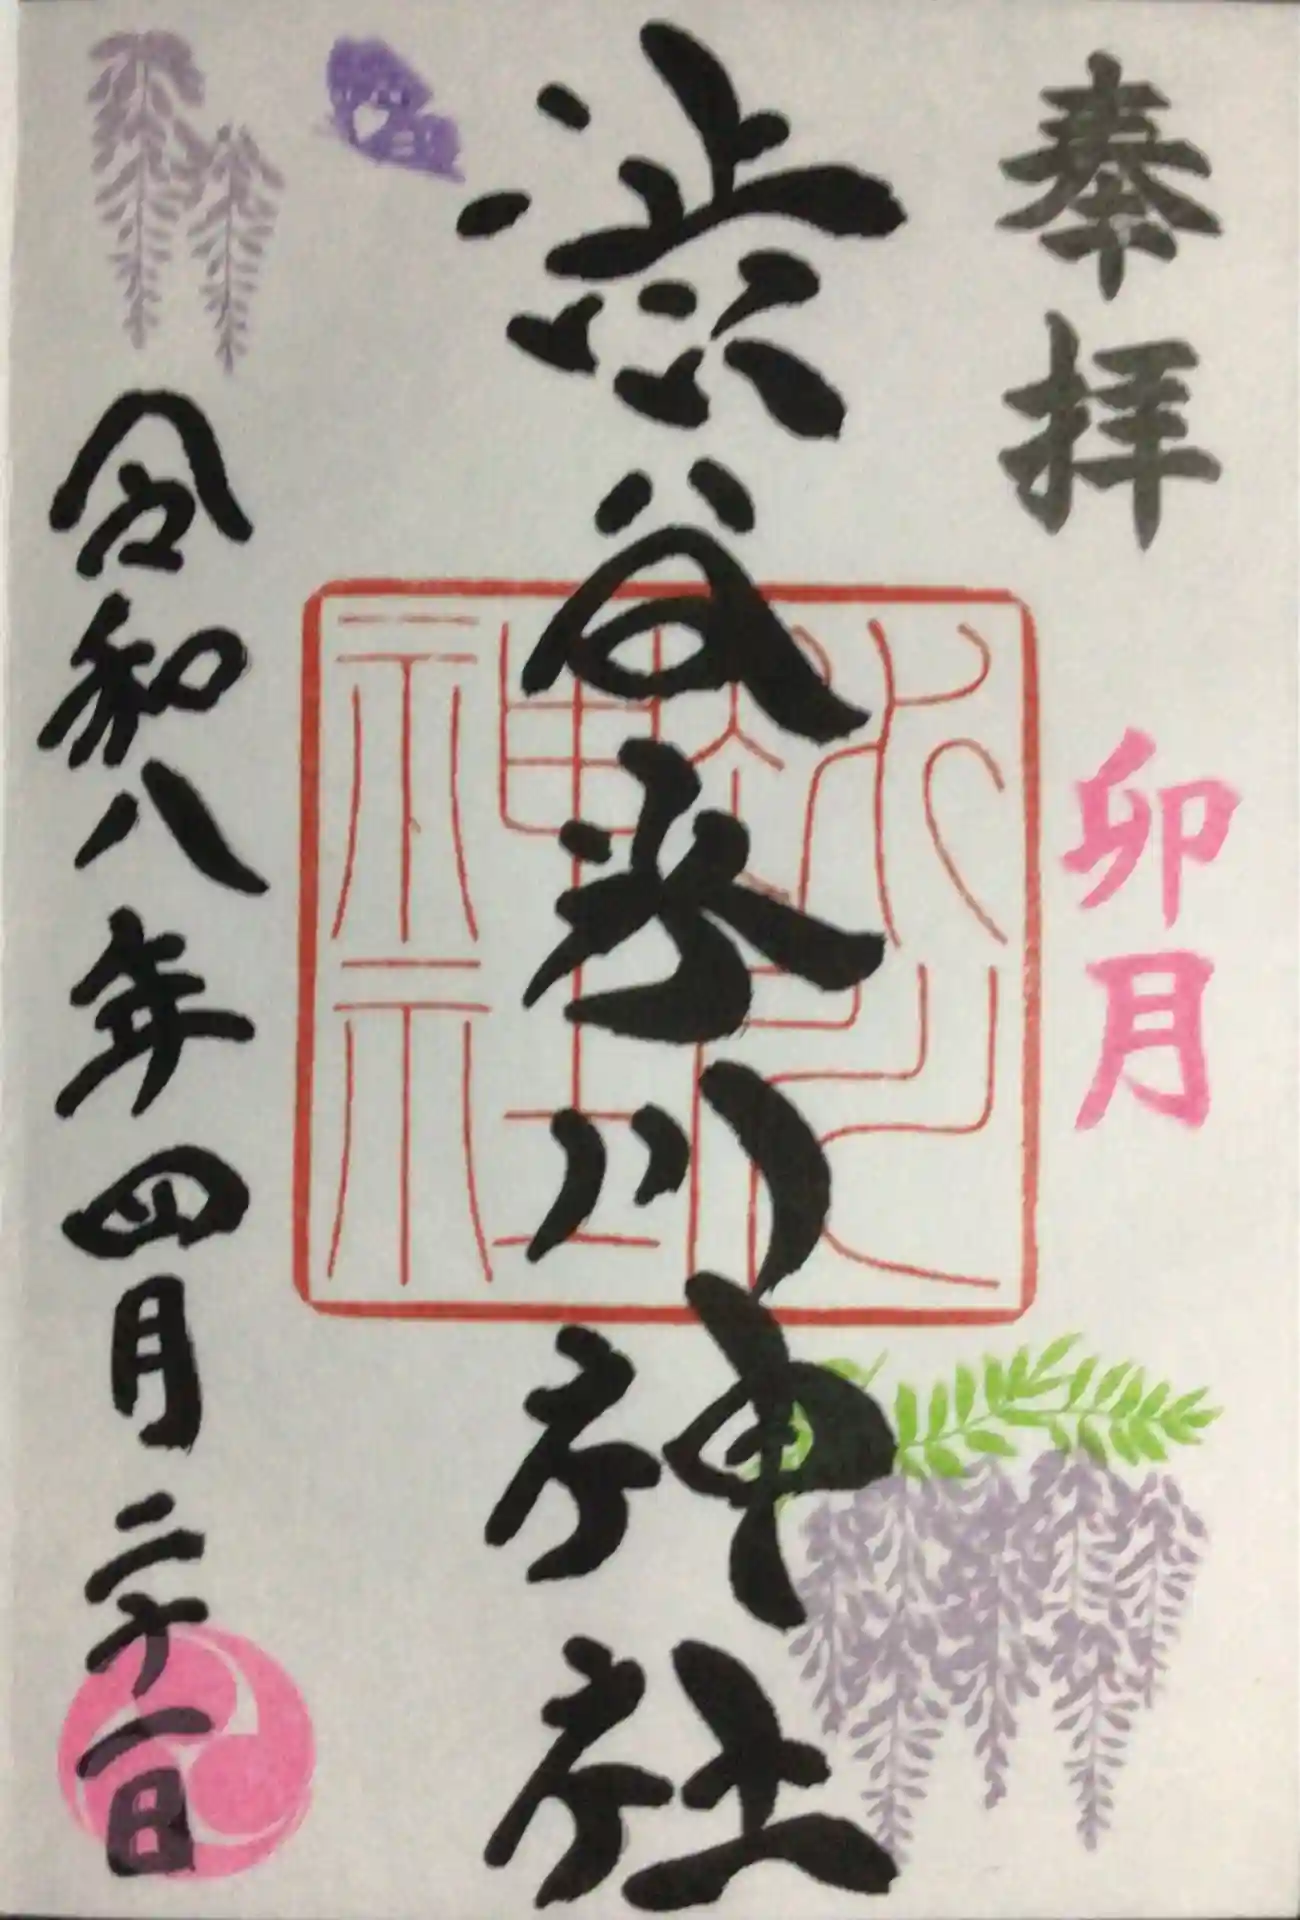 奉拝
卯月
渋谷氷川神社
令和八年四月二十一日